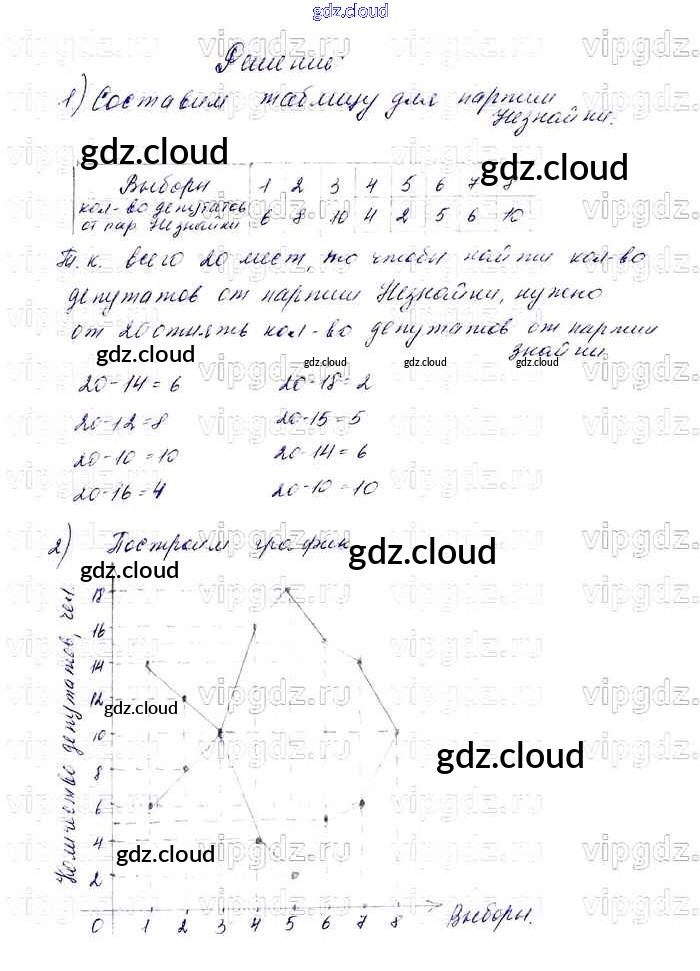 gdz.cloud
Решение:
1) Составим таблицу для партии
Незнайки.
Выборы 1 2 3 4 5 6 7 8
кол-во депутатов
от пар. Незнайки 6 8 10 4 2 5 6 10
Т.к. всего 20 мест, то чтобы найти кол-во
депутатов от партии Незнайки, нужно
от 20 отнять кол-во депутатов от партии
Знайки.
20-14=6 20-18=2
20-12=8 20-15=5
20-10=10 20-14=6
20-16=4 20-10=10
2) Построим график
Количество депутатов, чел.
18
16
14
12
10
8
6
4
2
0 1 2 3 4 5 6 7 8 Выборы.
gdz.cloud
gdz.cloud
gdz.cloud
gdz.cloud
gdz.cloud
gdz.cloud
gdz.cloud
gdz.cloud
gdz.cloud
gdz.cloud
gdz.cloud
vipgdz.ru